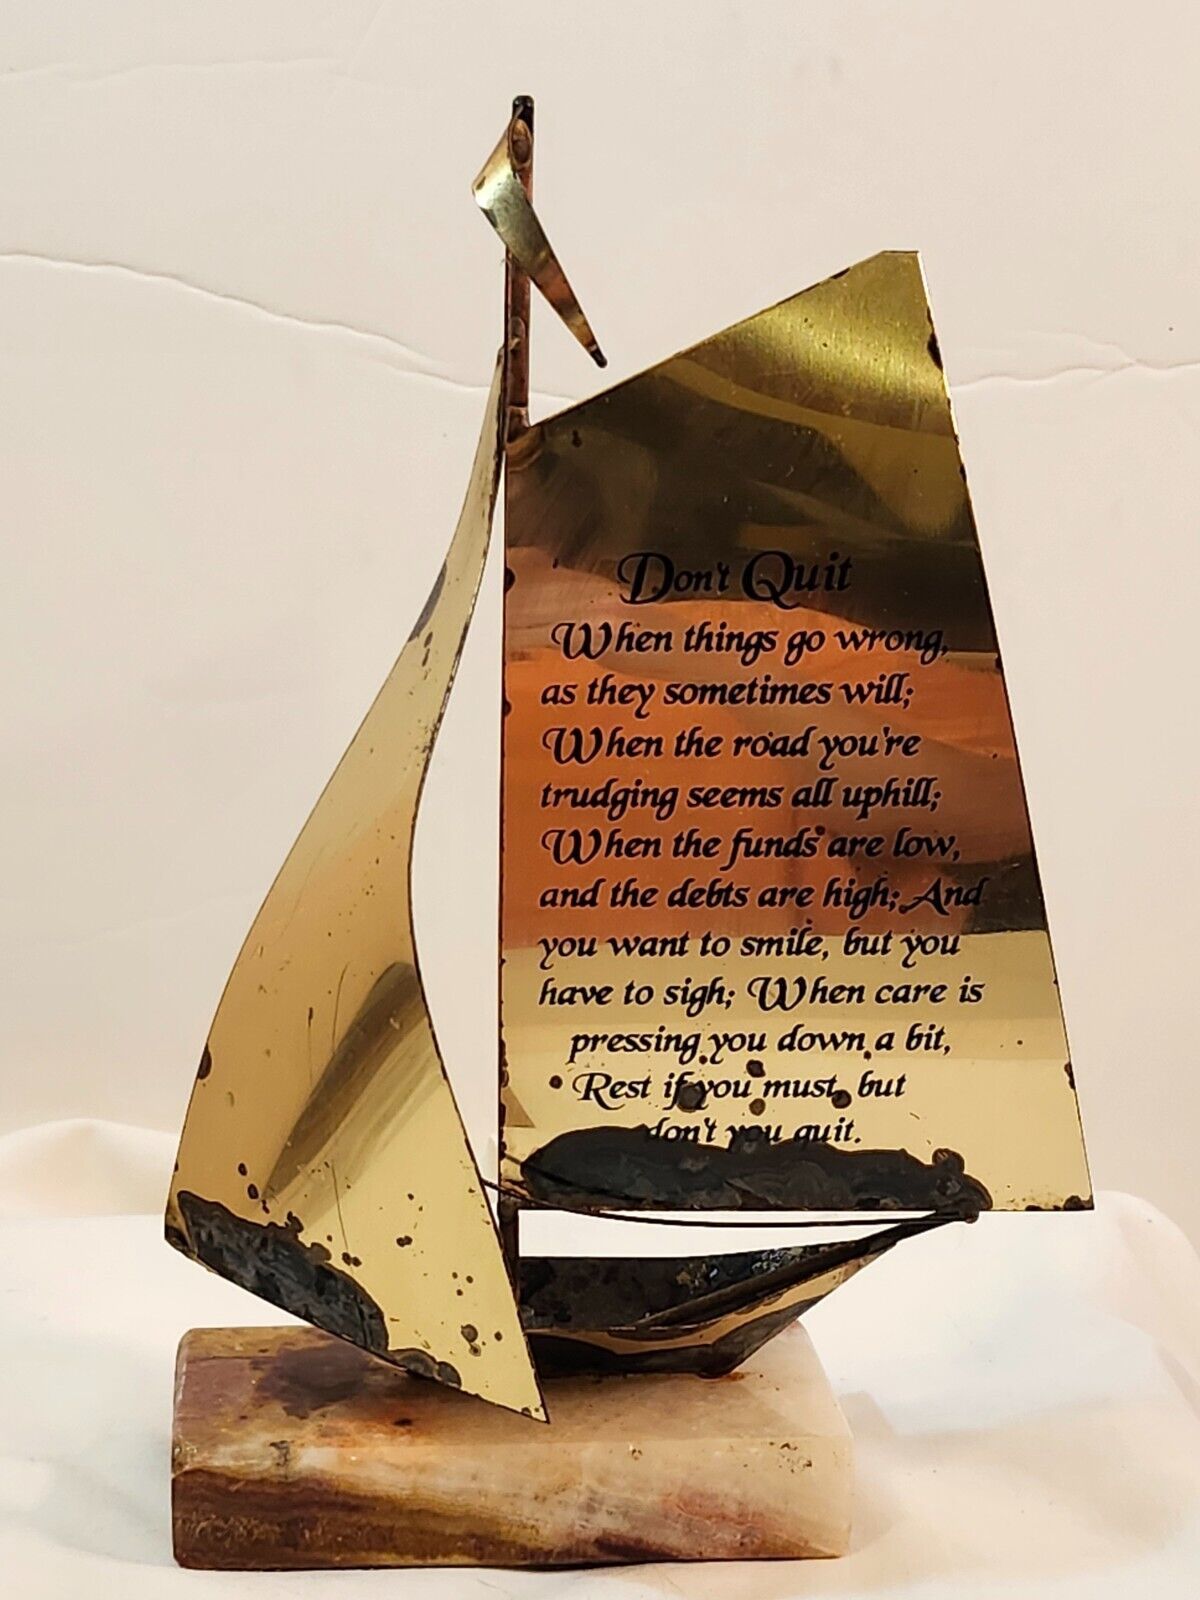 Don't Quit
When things go wrong,
as they sometimes will;
When the road you're
trudging seems all uphill;
When the funds are low,
and the debts are high; And
you want to smile, but you
have to sigh; When care is
pressing you down a bit,
Rest if you must, but
don't you quit.